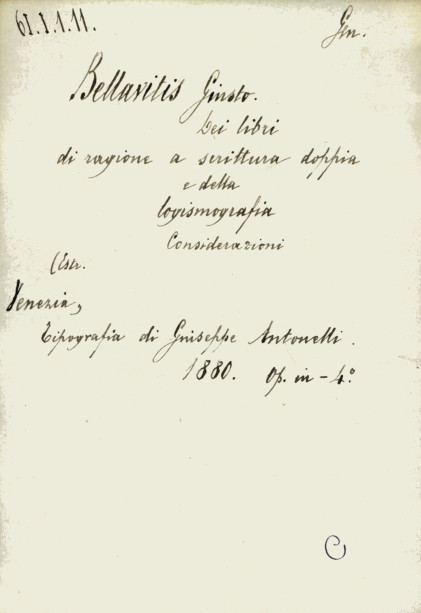 61.I.1.11.
Gen.
Bellavitis Giusto.
Dei libri
di ragione a scrittura doppia
e della
logismografia
Considerazioni
(Estr.
Venezia,
Tipografia di Giuseppe Antonelli.
1880. Op. in-4.º
C